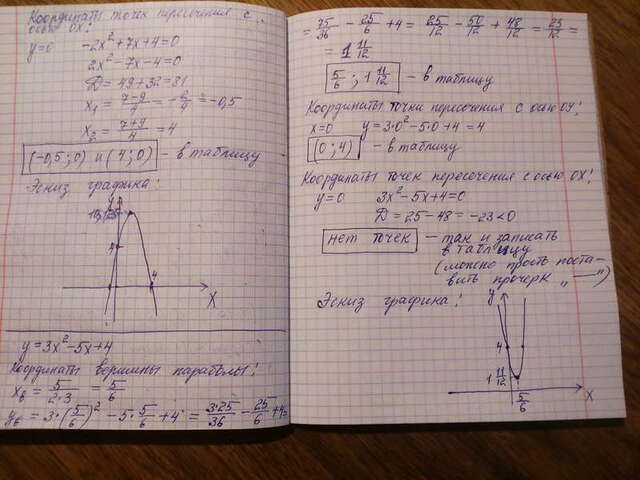 Координаты точек пересечения с
осью OX:
y=0 -2x²+7x+4=0
2x²-7x-4=0
D = 49+32=81
x₁ = (7-9)/4 = -2/4 = -0,5
x₂ = (7+9)/4 = 4
(-0,5;0) и (4;0) - в таблицу
Эскиз графика:
y
4
4
X
y=3x²-5x+4
Координаты вершины параболы:
xв = 5/(2·3) = 5/6
yв = 3·(5/6)² - 5·5/6 + 4 = 3·25/36 - 25/6 + 4=
= 25/12 - 50/12 + 48/12 = 23/12 =
= 1 11/12
5/6 ; 1 11/12 - в таблицу
Координаты точки пересечения с осью OY:
x=0 y=3·0²-5·0+4=4
(0;4) - в таблицу
Координаты точек пересечения с осью OX:
y=0 3x²-5x+4=0
D = 25-48=-23<0
нет точек - так и записать
в таблицу
(можно прость поста-
вить прочерк „—")
Эскиз графика:
y
4
1 11/12
5/6
X